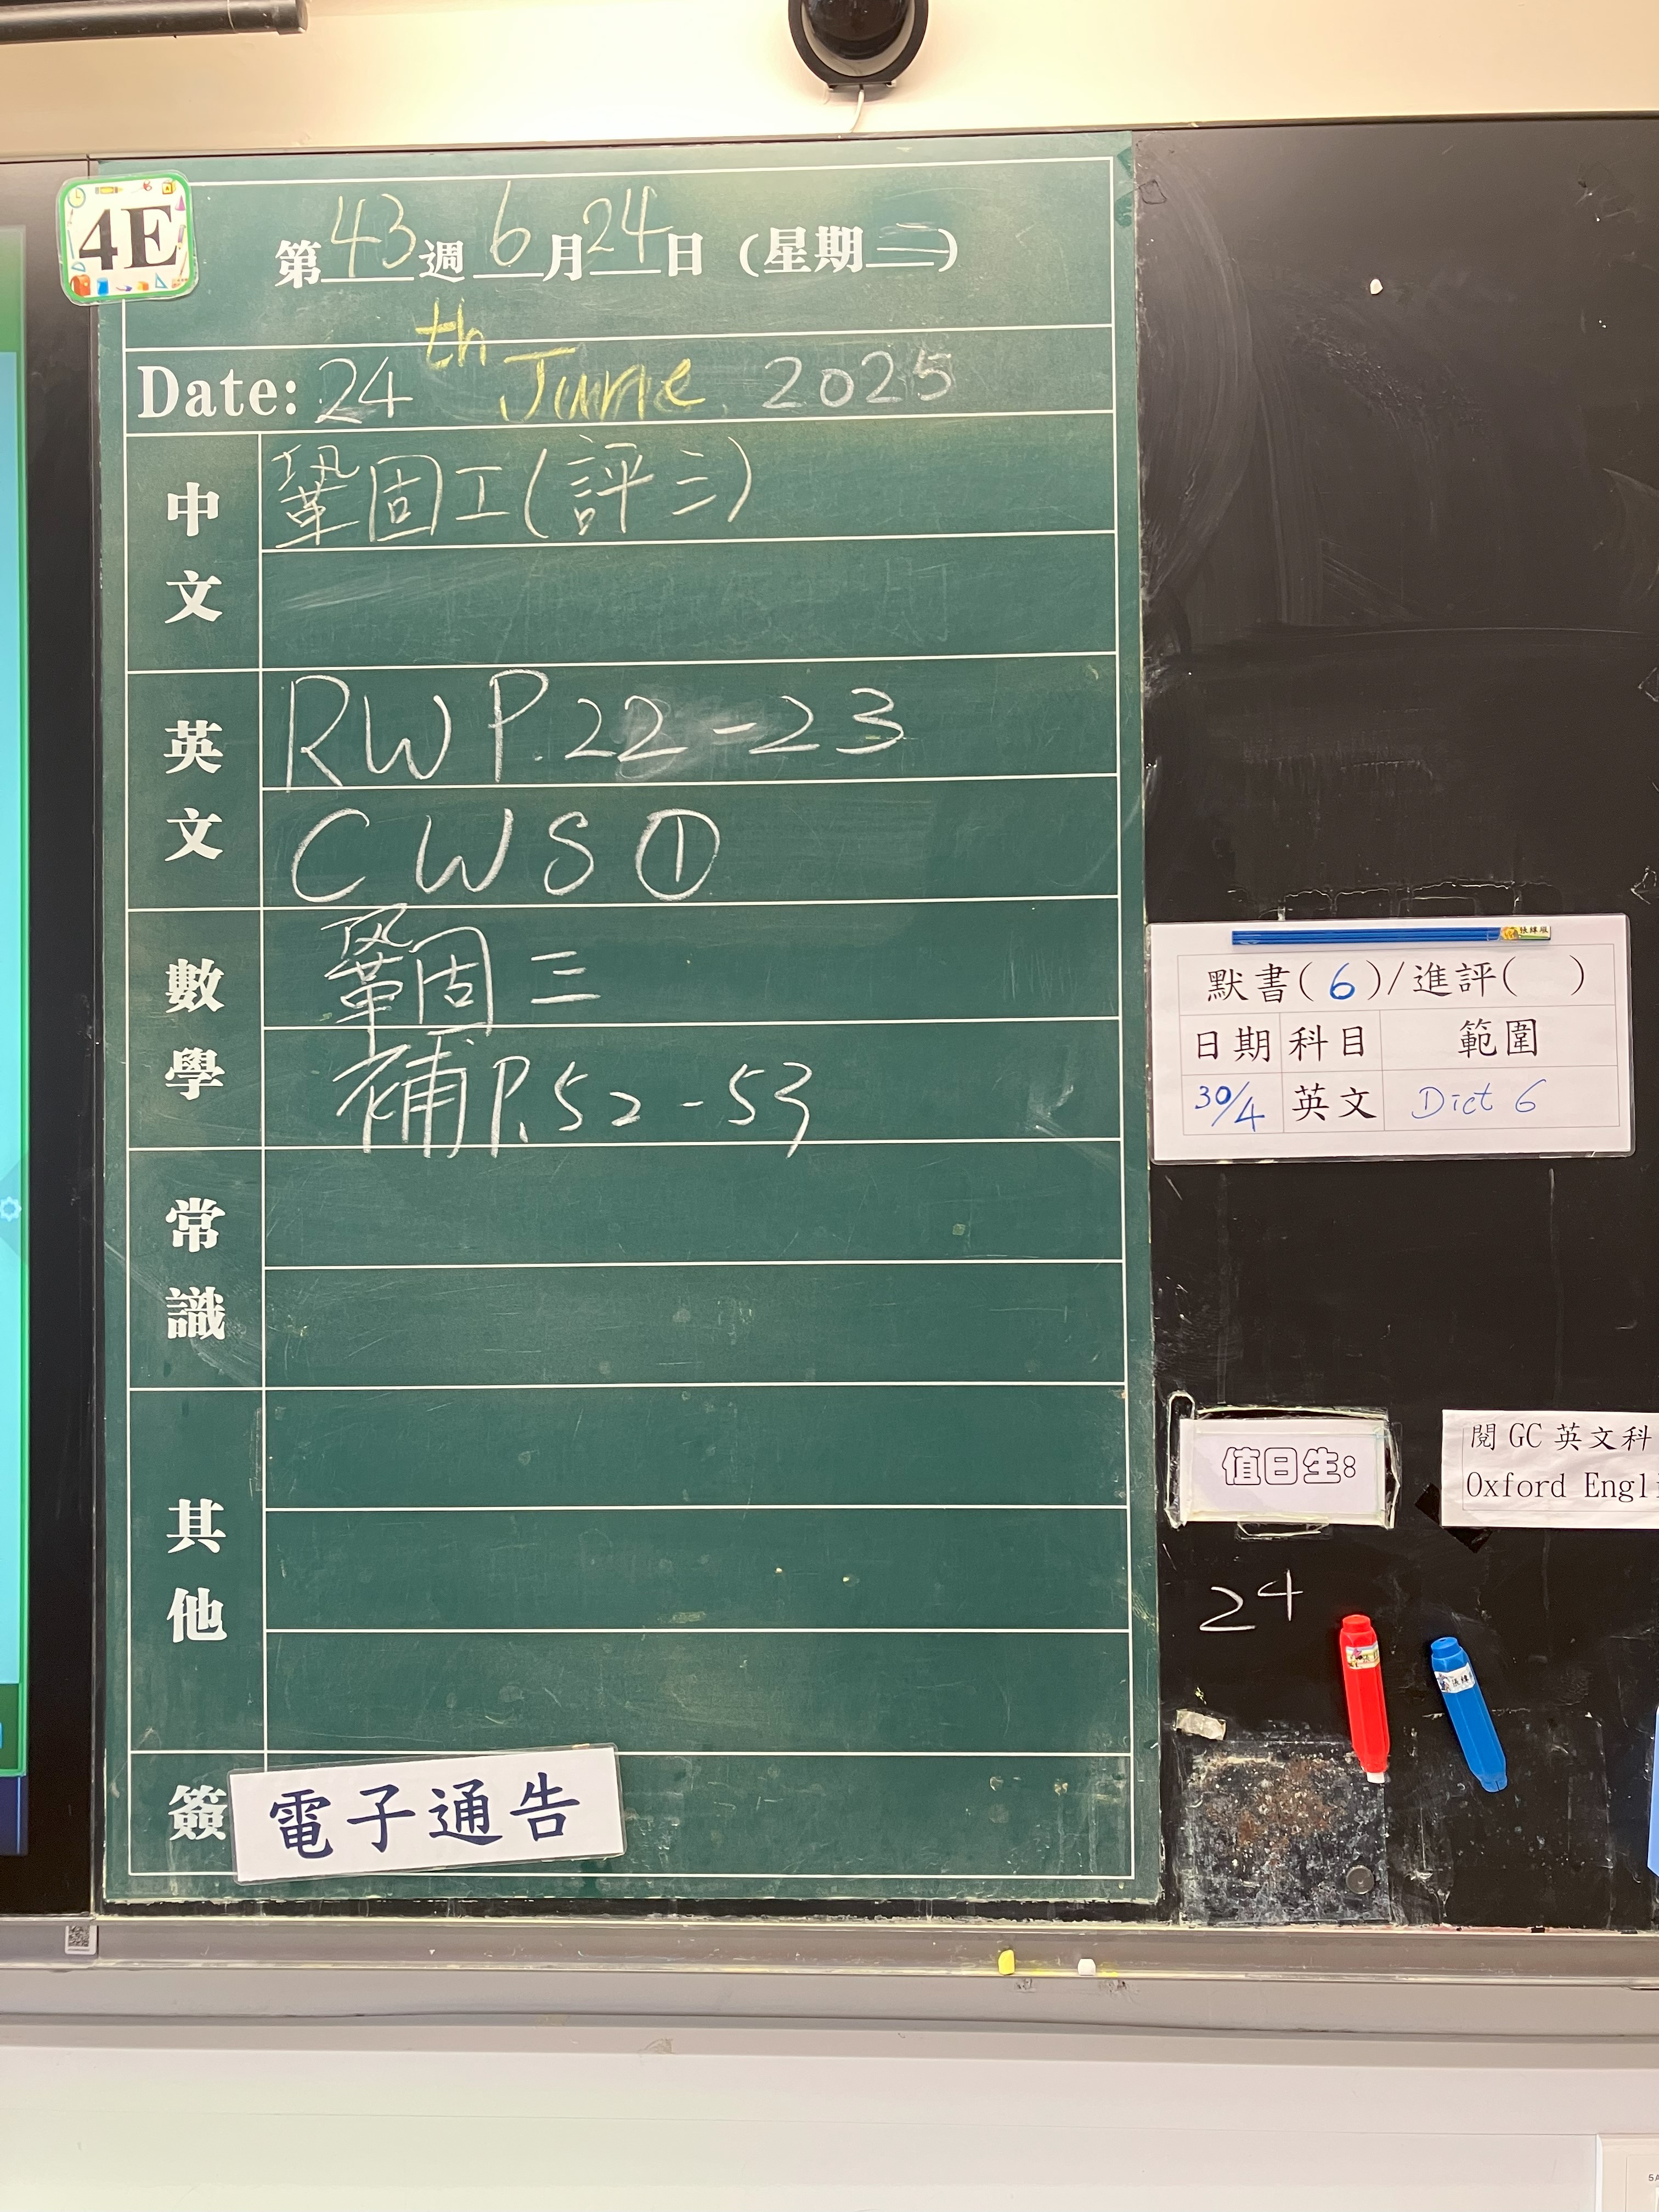 4E
第43週 6月24日（星期二）
Date: 24th June 2025
中文
鞏固工(評三)
英文
RW P.22-23
CWS①
數學
鞏固三
補P.52-53
常識
其他
簽
電子通告
默書(6)/進評( )
日期 科目 範圍
30/4 英文 Dict 6
值日生:
24
閱 GC 英文科
Oxford Engli